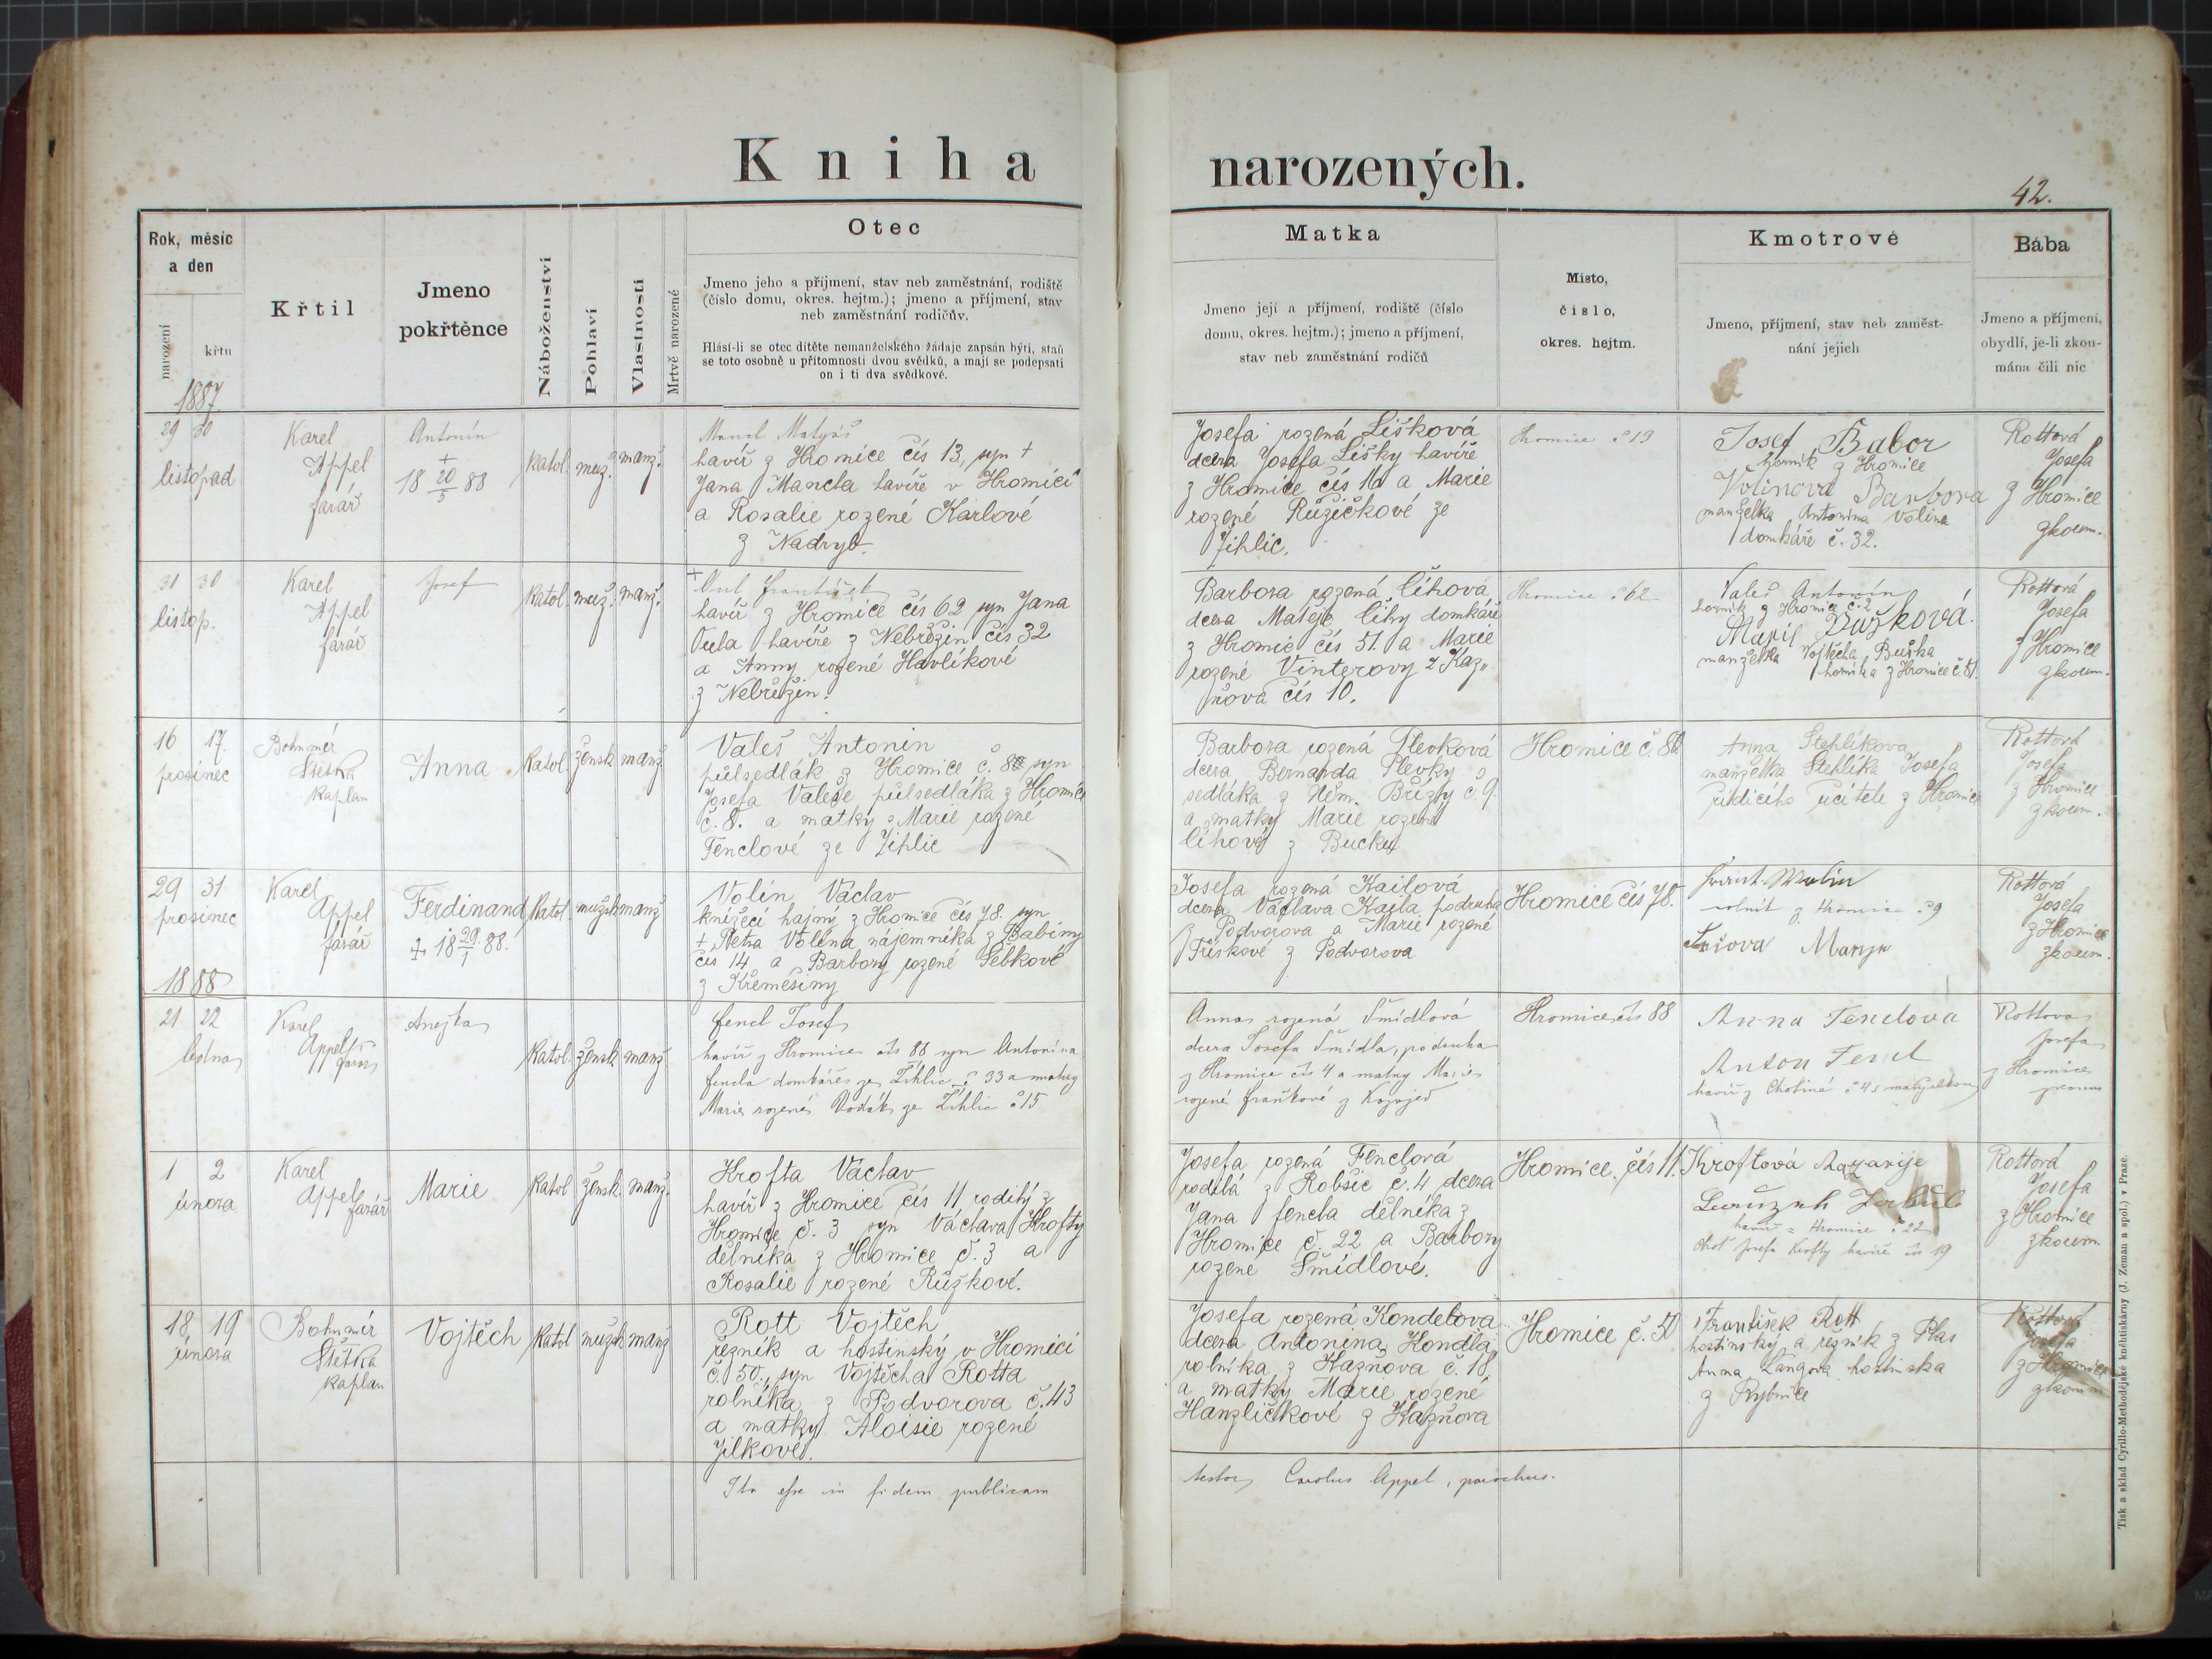 Kniha narozených.
42.
Rok, měsíc
a den
narození
křtu
Křtil
Jmeno
pokřtěnce
Náboženství
Pohlaví
Vlastnosti
Mrtvě narozené
Otec
Jmeno jeho a příjmení, stav neb zaměstnání, rodiště
(číslo domu, okres. hejtm.); jmeno a příjmení, stav
neb zaměstnání rodičův.
Hlásí-li se otec dítěte nemanželského žádaje zapsán býti, staň
se toto osobně u přítomnosti dvou svědků, a mají se podepsati
on i ti dva svědkové.
Matka
Jmeno její a příjmení, rodiště (číslo
domu, okres. hejtm.); jmeno a příjmení,
stav neb zaměstnání rodičů
Místo,
číslo,
okres. hejtm.
Kmotrové
Jmeno, příjmení, stav neb zaměst-
nání jejich
Bába
Jmeno a příjmení,
obydlí, je-li zkou-
mána čili nic
1887
29 30
listopad
Karel
Appel
farář
Antonín
+
18 20/5 88
Katol.
muž.
manž.
Mancl Matyáš
havíř z Hromice čís 13, syn +
Jana Mancla havíře v Hromici
a Rosalie rozené Karlové
z Nadryb.
Josefa rozená Lišková
dcera Josefa Lišky havíře
z Hromice čís a Marie
rozené Růžičkové ze
Žihlic.
Hromice č 13
Josef Babor
horník z Hromice
Volinova Barbora
manželka Antonína Volína
domkáře č. 32.
Rottová
Josefa
z Hromice
zkoum.
31 30
listop.
Karel
Appel
farář
Josef
Katol.
muž.
manž.
+ František
havíř z Hromice čís 62 syn Jana
havíře z Nebřezin čís 32
a Anny rozené Havlíkové
z Nebřezin.
Barbora rozená Číhová
dcera Matěje Číhy domkáře
z Hromic čís 51. a Marie
rozené Vinterovy z Kaz„
ňova čís 10.
Hromice č 62
Valeš Antonín
horník z Hromic č. 2
Bušková.
manželka Vojtěcha Buška
horníka z Hromice č. 51.
Rottová
Josefa
z Hromice
zkoum.
16 17.
prosinec
Bohumír
Štětka
kaplan
Anna
Katol.
žensk.
manž.
Valeš Antonín
půlsedlák z Hromice č. syn
Josefa Valeše půlsedláka z Hromice
č. 8. a matky Marie rozené
Fenclové ze Žihlic
Barbora rozená Plevková
dcera Bernarda Plevky
sedláka z Něm. Břízy č. 9
a matky Marie rozené
Číhové z Bucku
Hromice č.
Anna Stehlíkova
manželka Stehlíka Josefa
řídícího učitele z Hromice
Rottová
Josefa
z Hromice
zkoum.
29 31
prosinec
Karel
Appel
farář
Ferdinand
+ 18 29/1 88.
Katol.
mužsk
manž
Volín Václav
knížecí hajný z Hromice čís 78. syn
+ Petra Volína nájemníka z Babiny
čís 14 a Barbory rozené Šebkové
z Křeměšiny
Josefa rozená Kailová
dcera Václava Kaila podruha
z Podvorova a Marie rozené
Třískové z Podvorova
Hromice čís 78.
Frant. Wolín
rolník z Hromice č 9
Rottová
Josefa
z Hromice
zkoum.
1888
21 22
ledna
Karel
Appel
farář
Anežka
Katol.
žensk.
manž
Fencl Josef
havíř z Hromice čís 88 syn Antonína
Fencla domkáře ze Žihlic č 33 a matky
Marie rozené Vodák ze Žihlic č 15
Anna rozená Šmídlová
dcera Josefa Šmídla, podruha
z Hromice čís 4 a matky Marie
rozené z
Hromice čís 88
Anna Fenclova
Anton Fencl
havíř z Chotiné č 4 s manželkou
Rottova
Josefa
z Hromice
zkoum
1 2
února
Karel
Appel
farář
Marie
Katol
žensk.
manž.
Krofta Václav
havíř z Hromice čís 11 rodilý z
Hromice č. 3 syn Václava Krofty
dělníka z Hromice č. 3 a
Rosalie rozené Růžkové.
Josefa rozená Fenclová
rodilá z Robšic č. 4 dcera
Jana Fencla dělníka z
Hromice č. 22 a Barbory
rozené Šmídlové.
Hromice čís 11.
Kroftová
havíř z Hromice č 22
choť Josefa Krofty havíře čís 19
Rottová
Josefa
z Hromice
zkoum.
18 19
února
Bohumír
Štětka
kaplan
Vojtěch
Katol
mužsk
manž
Rott Vojtěch
řezník a hostinský v Hromici
č. 50., syn Vojtěcha Rotta
rolníka z Podvorova č. 43
a matky Aloisie rozené
Jílkové.
Josefa rozená Kondelova
dcera Antonína Kondla
rolníka z Kazňova č. 18
a matky Marie rozené
Hanzličkové z Kazňova
Hromice č. 50
František Rott
hostinský a řezník z Plas
Anna Langova hostinska
z Rybnice
Rottová
Josefa
z Hromice
zkoum
Ita esse in fidem publicam
testor Carolus Appel, parochus.
Tisk a sklad Cyrillo-Methodějské knihtiskárny (J. Zeman a spol.) v Praze.